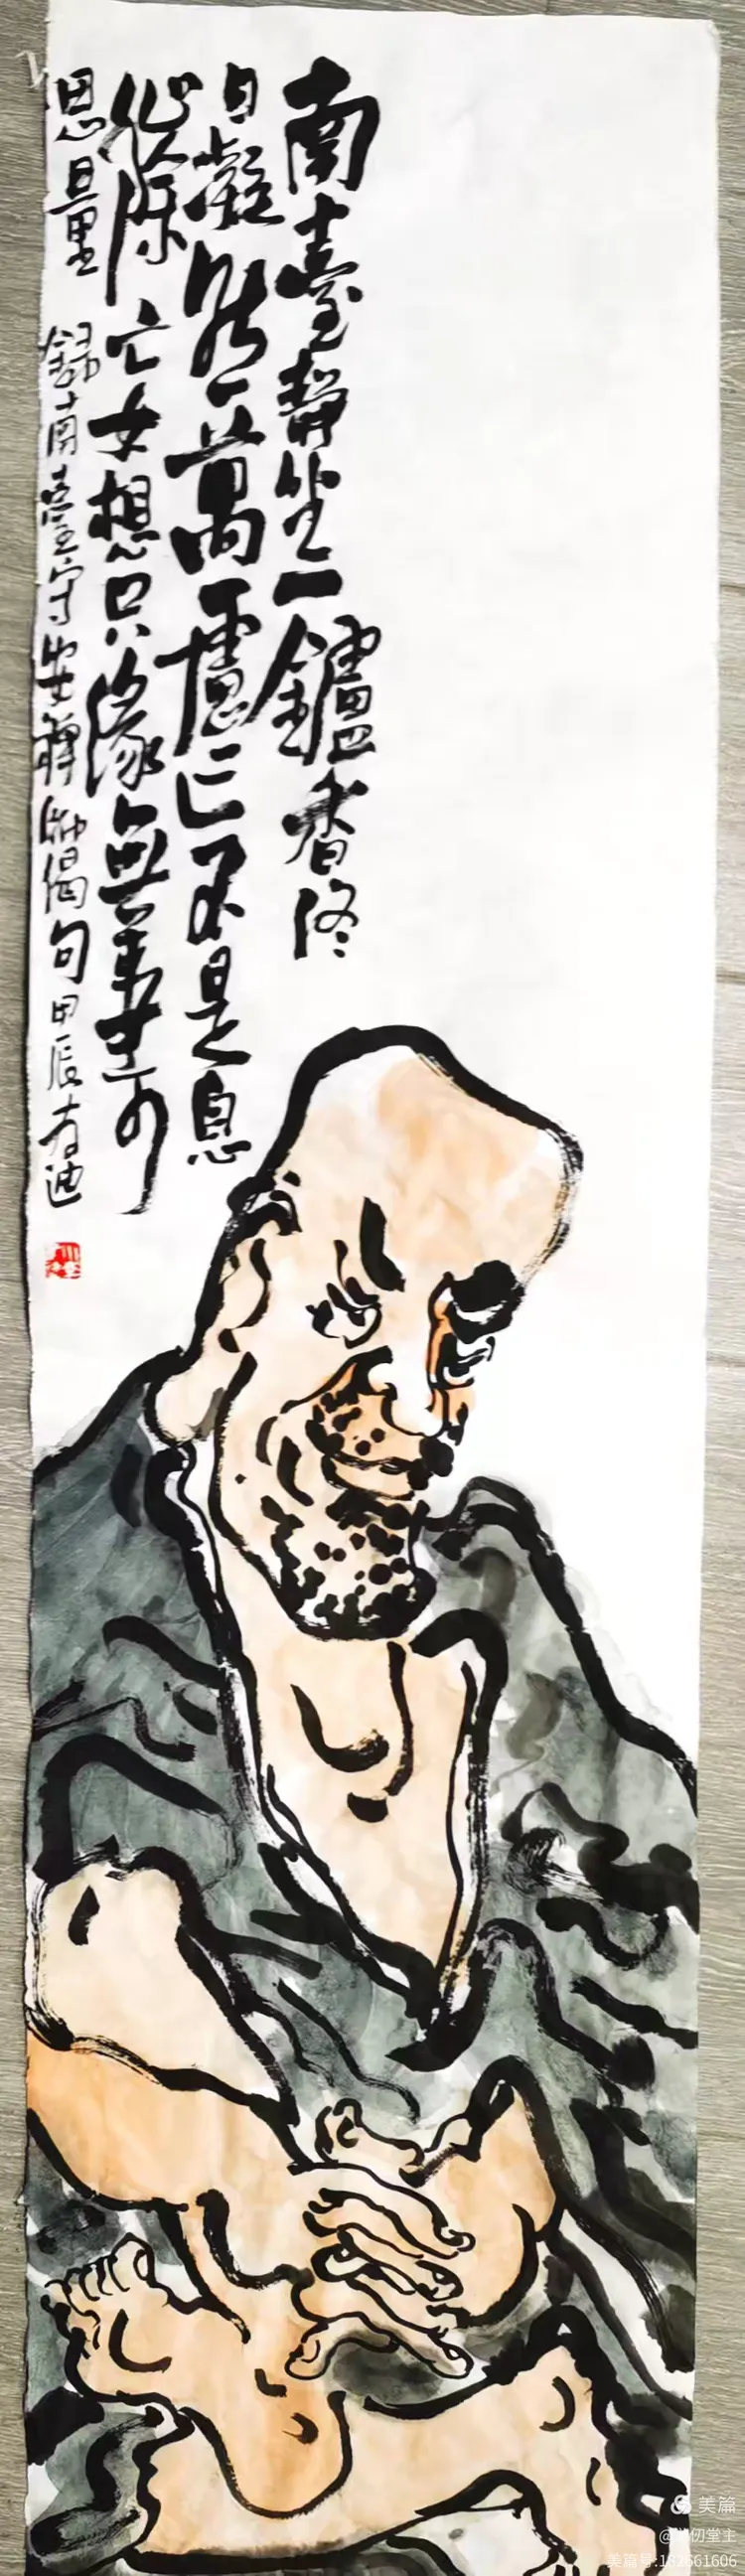 南臺靜坐一鑪香终
日凝然萬慮亡不是息
心除妄想只缘無事可
思量 録南臺守安禪師偈句甲辰
美篇
仞堂主
美篇号:182661606